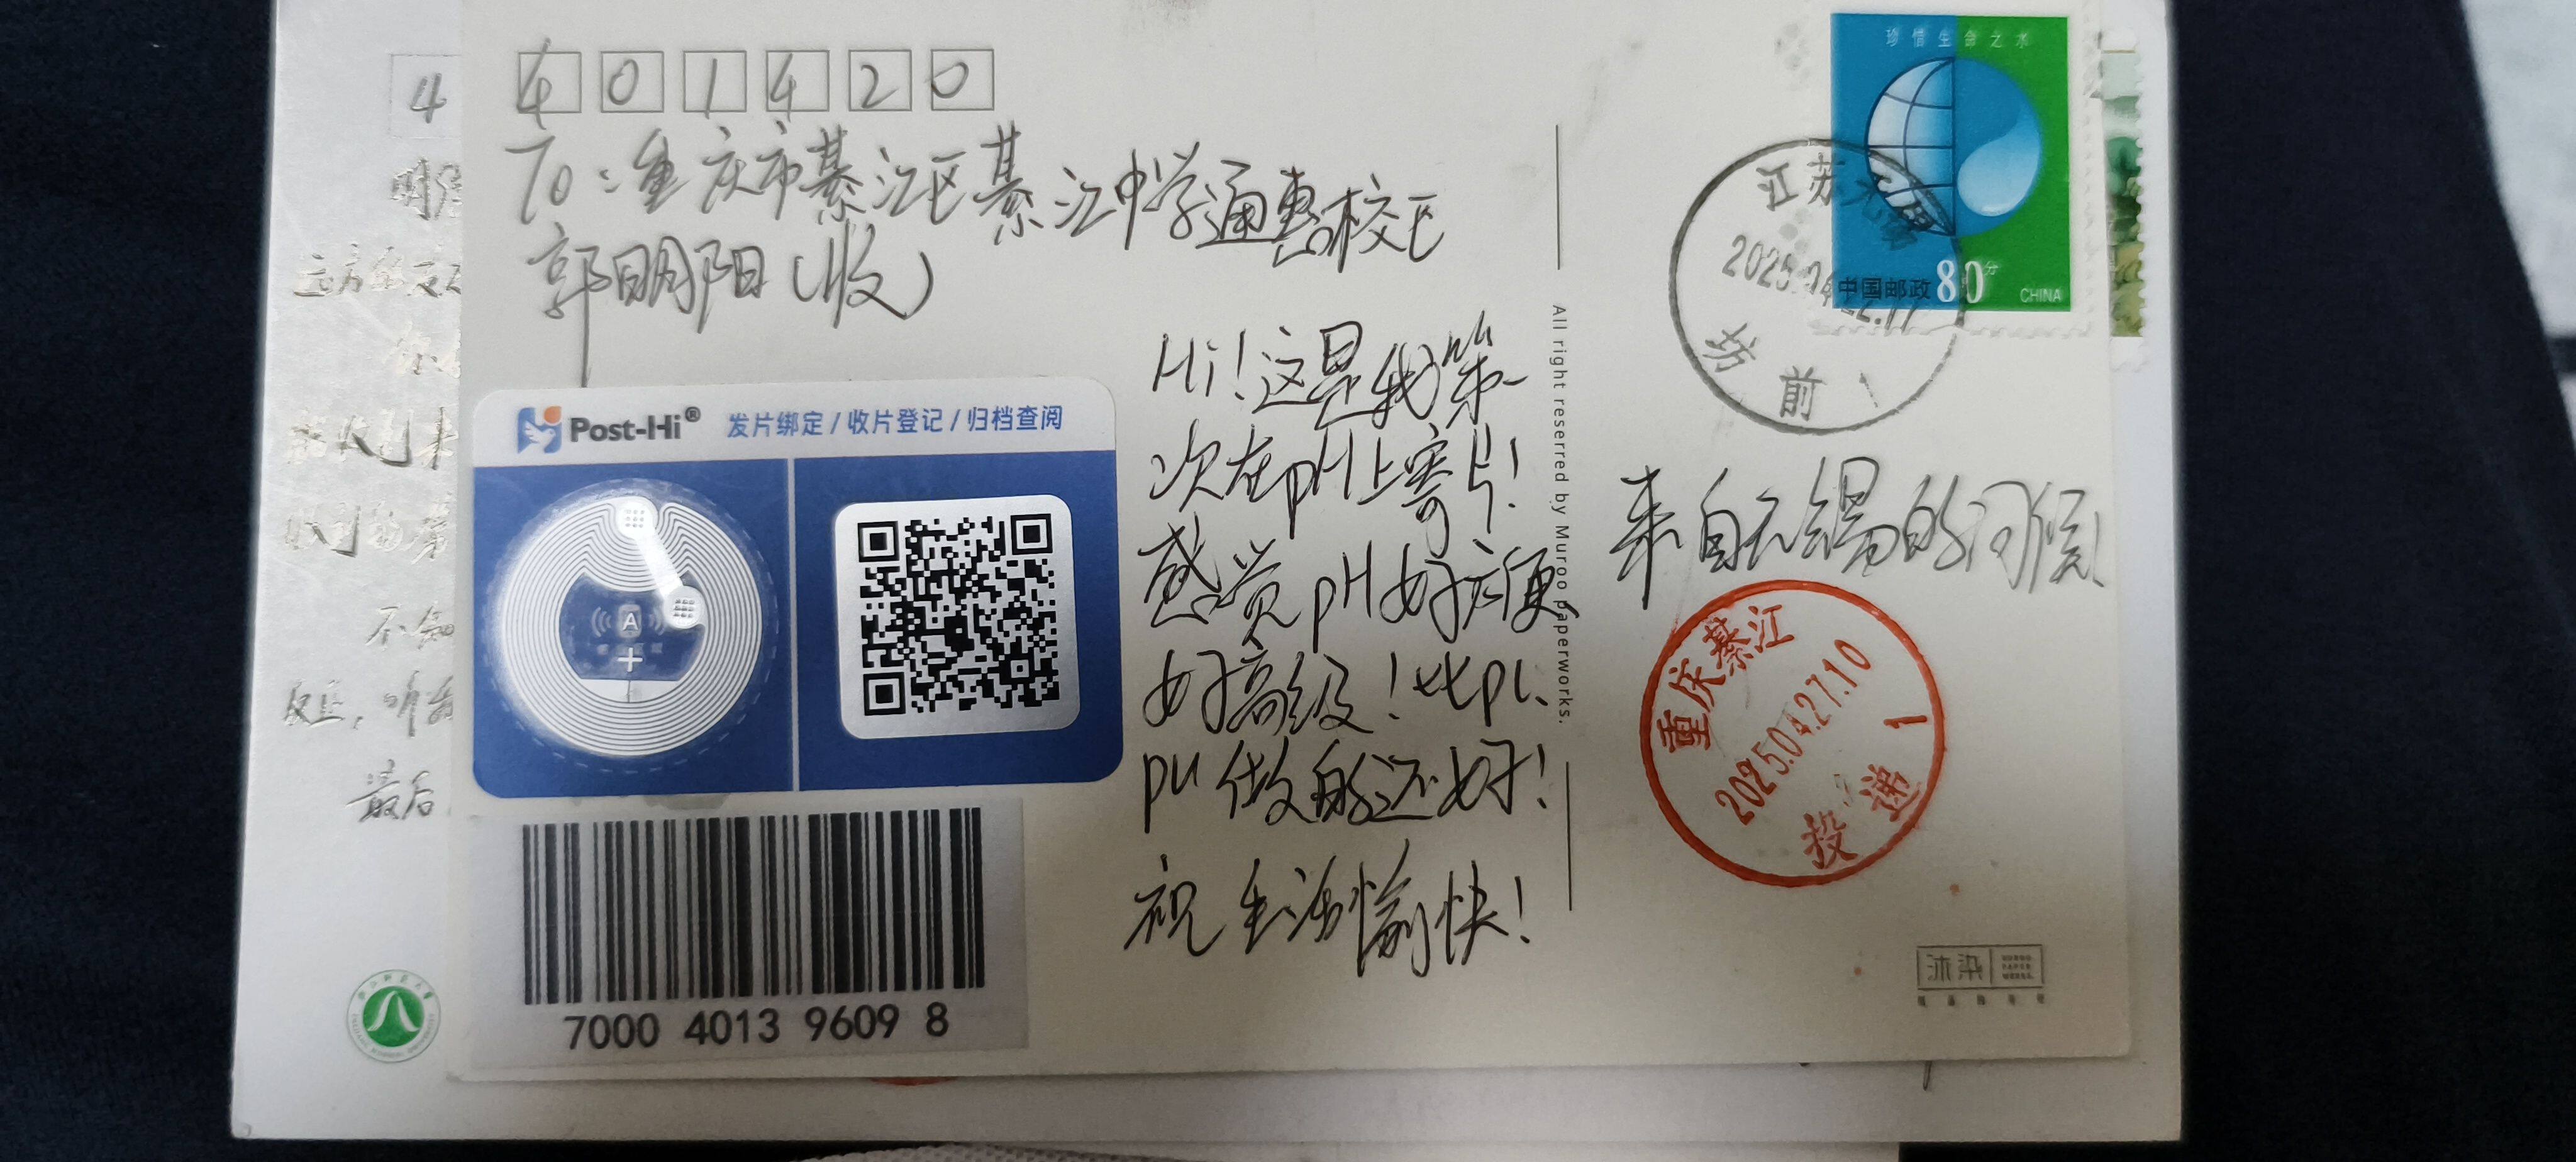 401420
To：重庆市綦江区綦江中学通惠校区
郭明阳（收）
Post-Hi® 发片绑定 / 收片登记 / 归档查阅
A
7000 4013 9609 8
Hi！这是我第一
次在pH上寄片！
感觉pH好方便
好高级！比pi.
pu做的还好！
祝生活愉快！
All right reserred by Muroo paperworks.
珍惜生命之水
中国邮政 80分 CHINA
江苏无锡
坊前 1
来自无锡的问候
重庆綦江
2025.04.27.10
投递 1
沐染
4
远方的
收到
不知
反正，听
最后